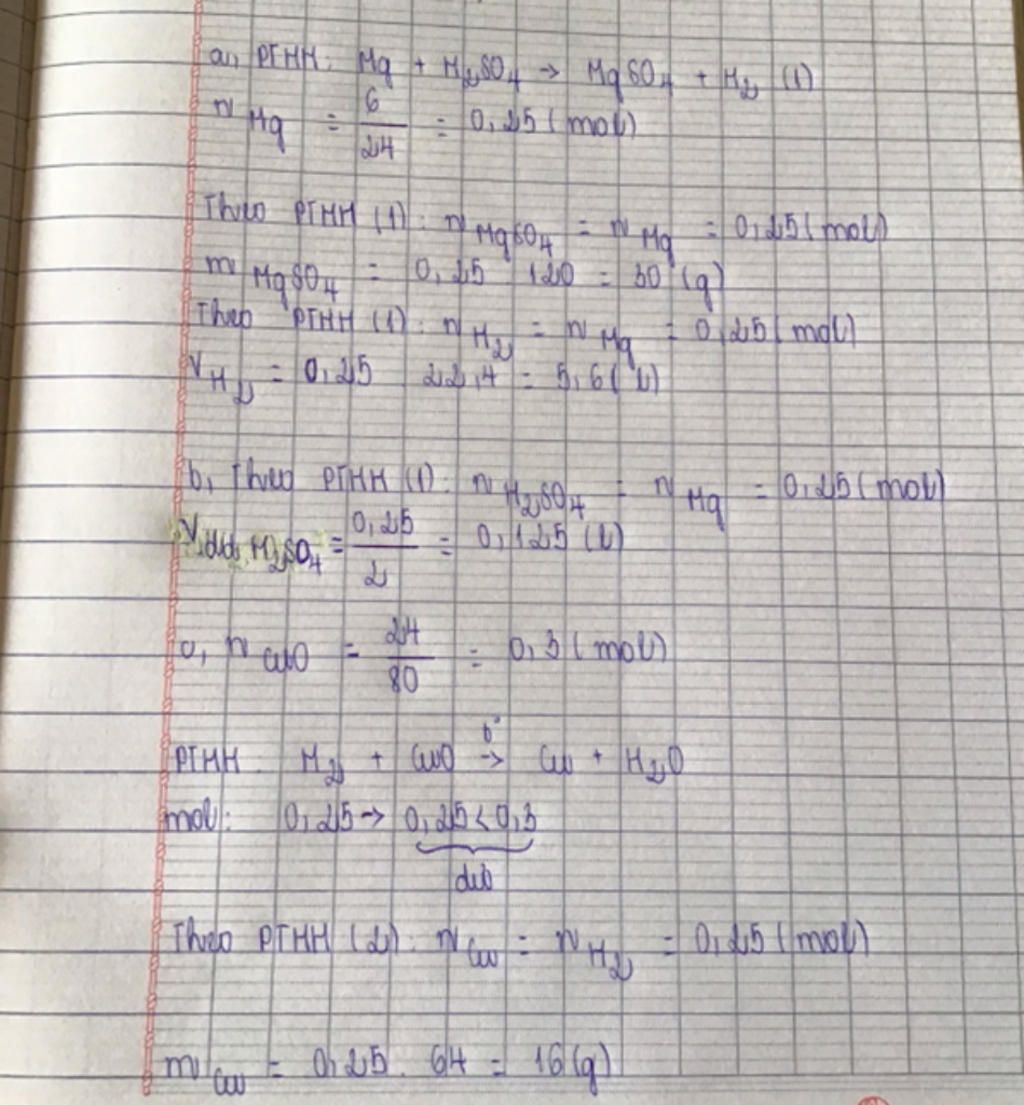 a, PTHH: Mg + H₂SO₄ → MgSO₄ + H₂ (1)
n Mg = 6/24 = 0,25 (mol)
Theo PTHH (1): n MgSO₄ = n Mg = 0,25 (mol)
m MgSO₄ = 0,25 . 120 = 30 (g)
Theo PTHH (1): n H₂ = n Mg = 0,25 (mol)
V H₂ = 0,25 . 22,4 = 5,6 (l)
b, Theo PTHH (1): n H₂SO₄ = n Mg = 0,25 (mol)
V dd H₂SO₄ = 0,25/2 = 0,125 (l)
c, n CuO = 24/80 = 0,3 (mol)
PTHH: H₂ + CuO →(t°) Cu + H₂O
mol: 0,25 → 0,25 < 0,3
dư
Theo PTHH (2): n Cu = n H₂ = 0,25 (mol)
m Cu = 0,25 . 64 = 16 (g)